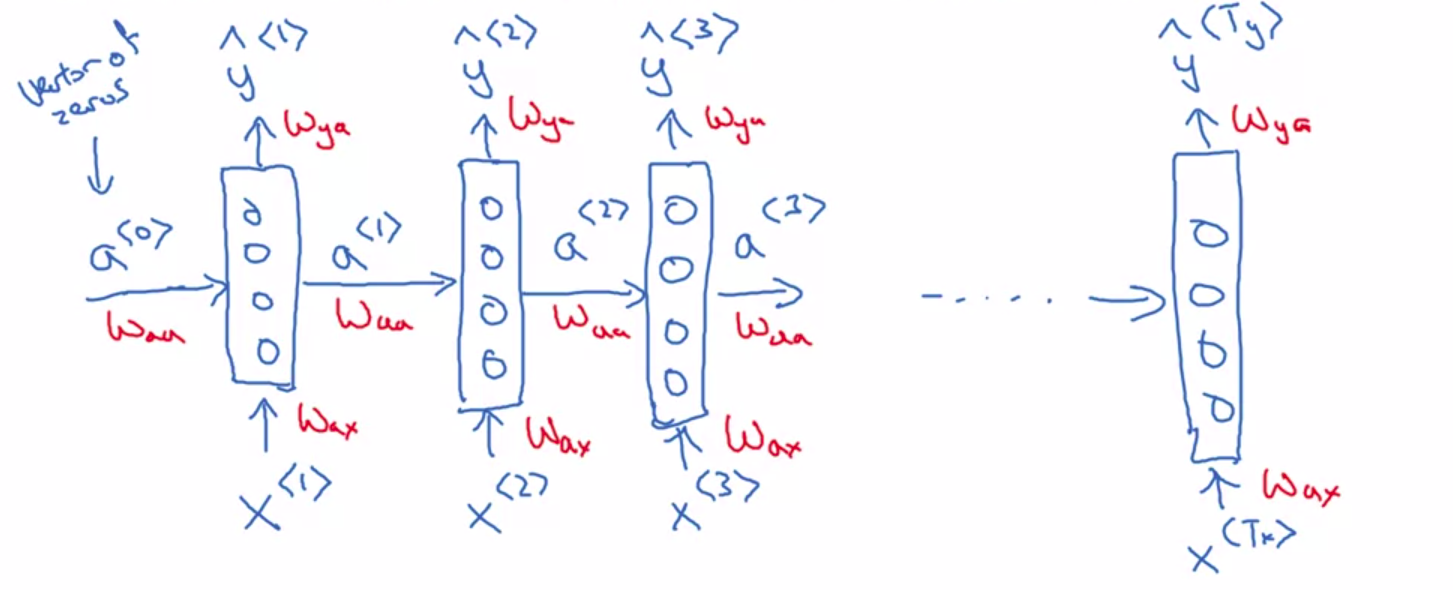 vector of zeros
ŷ<1> ŷ<2> ŷ<3> ŷ<Ty>
Wya Wya Wya Wya
a<0> a<1> a<2> a<3>
Waa Waa Waa Waa
Wax Wax Wax Wax
x<1> x<2> x<3> x<Tx>